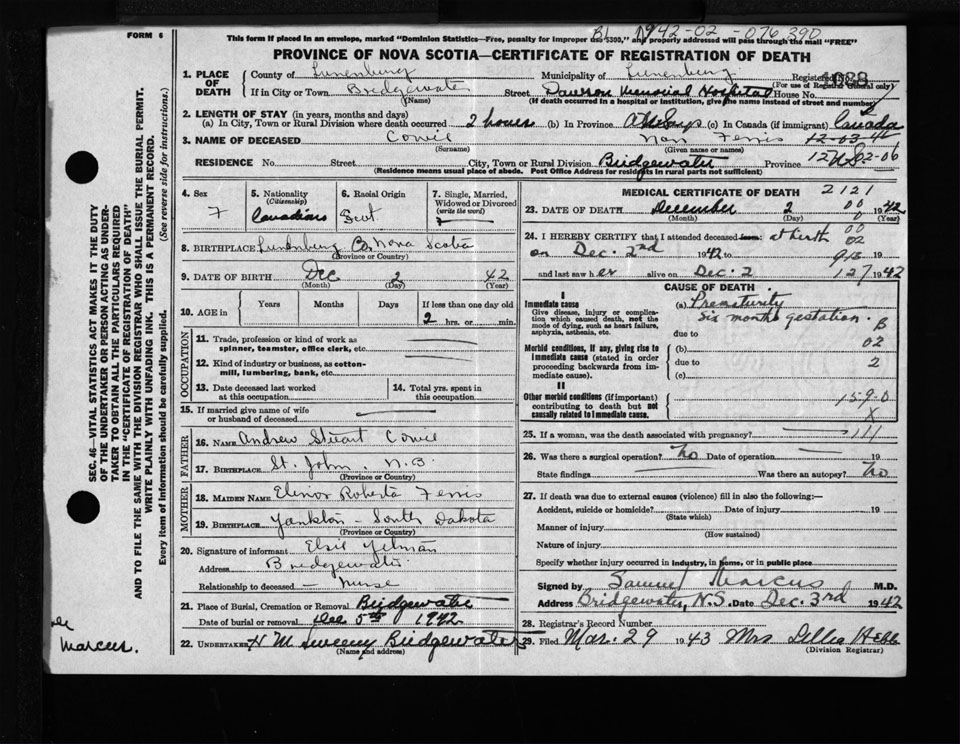 FORM 6
This form if placed in an envelope, marked "Dominion Statistics—Free, penalty for improper use $300," and properly addressed will pass through the mail "FREE"
1942-02-076390
PROVINCE OF NOVA SCOTIA—CERTIFICATE OF REGISTRATION OF DEATH
1. PLACE OF DEATH
County of Lunenburg Municipality of Lunenburg Registered No.
(For use of Registrar General only)
If in City or Town Bridgewater Street Dawson Memorial Hospital House No.
(Name) (If death occurred in a hospital or institution, give the name instead of street and number)
2. LENGTH OF STAY (in years, months and days)
(a) In City, Town or Rural Division where death occurred 2 hours (b) In Province (c) In Canada (if immigrant) Canada
3. NAME OF DECEASED Cowie Ferris
(Surname) (Given name or names)
12-03-4
RESIDENCE No. Street City, Town or Rural Division Bridgewater Province N.S.
(Residence means usual place of abode. Post Office Address for residents in rural parts not sufficient)
4. Sex F
5. Nationality (Citizenship) Canadian
6. Racial Origin Scot
7. Single, Married, Widowed or Divorced (write the word)
8. BIRTHPLACE Lunenburg Co. Nova Scotia
(Province or Country)
9. DATE OF BIRTH Dec 2 42
(Month) (Day) (Year)
10. AGE in Years Months Days If less than one day old
2 hrs. or min.
OCCUPATION
11. Trade, profession or kind of work as spinner, teamster, office clerk, etc.
12. Kind of industry or business, as cotton-mill, lumbering, bank, etc.
13. Date deceased last worked at this occupation
14. Total yrs. spent in this occupation
15. If married give name of wife or husband of deceased
FATHER
16. NAME Andrew Stuart Cowie
17. BIRTHPLACE St. John, N.B.
(Province or Country)
MOTHER
18. MAIDEN NAME Elenor Roberta Ferris
19. BIRTHPLACE Yankton - South Dakota
(Province or Country)
20. Signature of informant Elsie
Address Bridgewater
Relationship to deceased — Nurse
21. Place of Burial, Cremation or Removal Bridgewater
Date of burial or removal Dec 5th 1942
22. UNDERTAKER H M Sweeny Bridgewater
(Name and address)
MEDICAL CERTIFICATE OF DEATH
2121
23. DATE OF DEATH December 2 1942
(Month) (Day) (Year)
24. I HEREBY CERTIFY that I attended deceased from: at birth
on Dec. 2nd 1942 to 19
and last saw her alive on Dec. 2 1942
CAUSE OF DEATH
I
Immediate cause
Give disease, injury or complication which caused death, not the mode of dying, such as heart failure, asphyxia, asthenia, etc.
(a) Prematurity
six months gestation.
due to
Morbid conditions, if any, giving rise to immediate cause (stated in order proceeding backwards from immediate cause).
(b)
due to
(c)
II
Other morbid conditions (if important) contributing to death but not causally related to immediate cause.
15-9-0
X
25. If a woman, was the death associated with pregnancy?
26. Was there a surgical operation? No Date of operation 19
State findings Was there an autopsy? No
27. If death was due to external causes (violence) fill in also the following:—
Accident, suicide or homicide? Date of injury 19
(State which)
Manner of injury
(How sustained)
Nature of injury
Specify whether injury occurred in industry, in home, or in public place
Signed by Samuel Marcus M.D.
Address Bridgewater, N.S. Date Dec. 3rd 1942
28. Registrar's Record Number
29. Filed Mar. 29 1943 Mrs Hebb
(Division Registrar)
SEC. 46—VITAL STATISTICS ACT MAKES IT THE DUTY
OF THE UNDERTAKER OR PERSON ACTING AS UNDERTAKER TO OBTAIN ALL THE PARTICULARS REQUIRED
IN THE "CERTIFICATE OF REGISTRATION OF DEATH"
AND TO FILE THE SAME WITH THE DIVISION REGISTRAR WHO SHALL ISSUE THE BURIAL PERMIT.
WRITE PLAINLY WITH UNFADING INK. THIS IS A PERMANENT RECORD.
Every item of information should be carefully supplied. (See reverse side for instructions.)
Marcus.